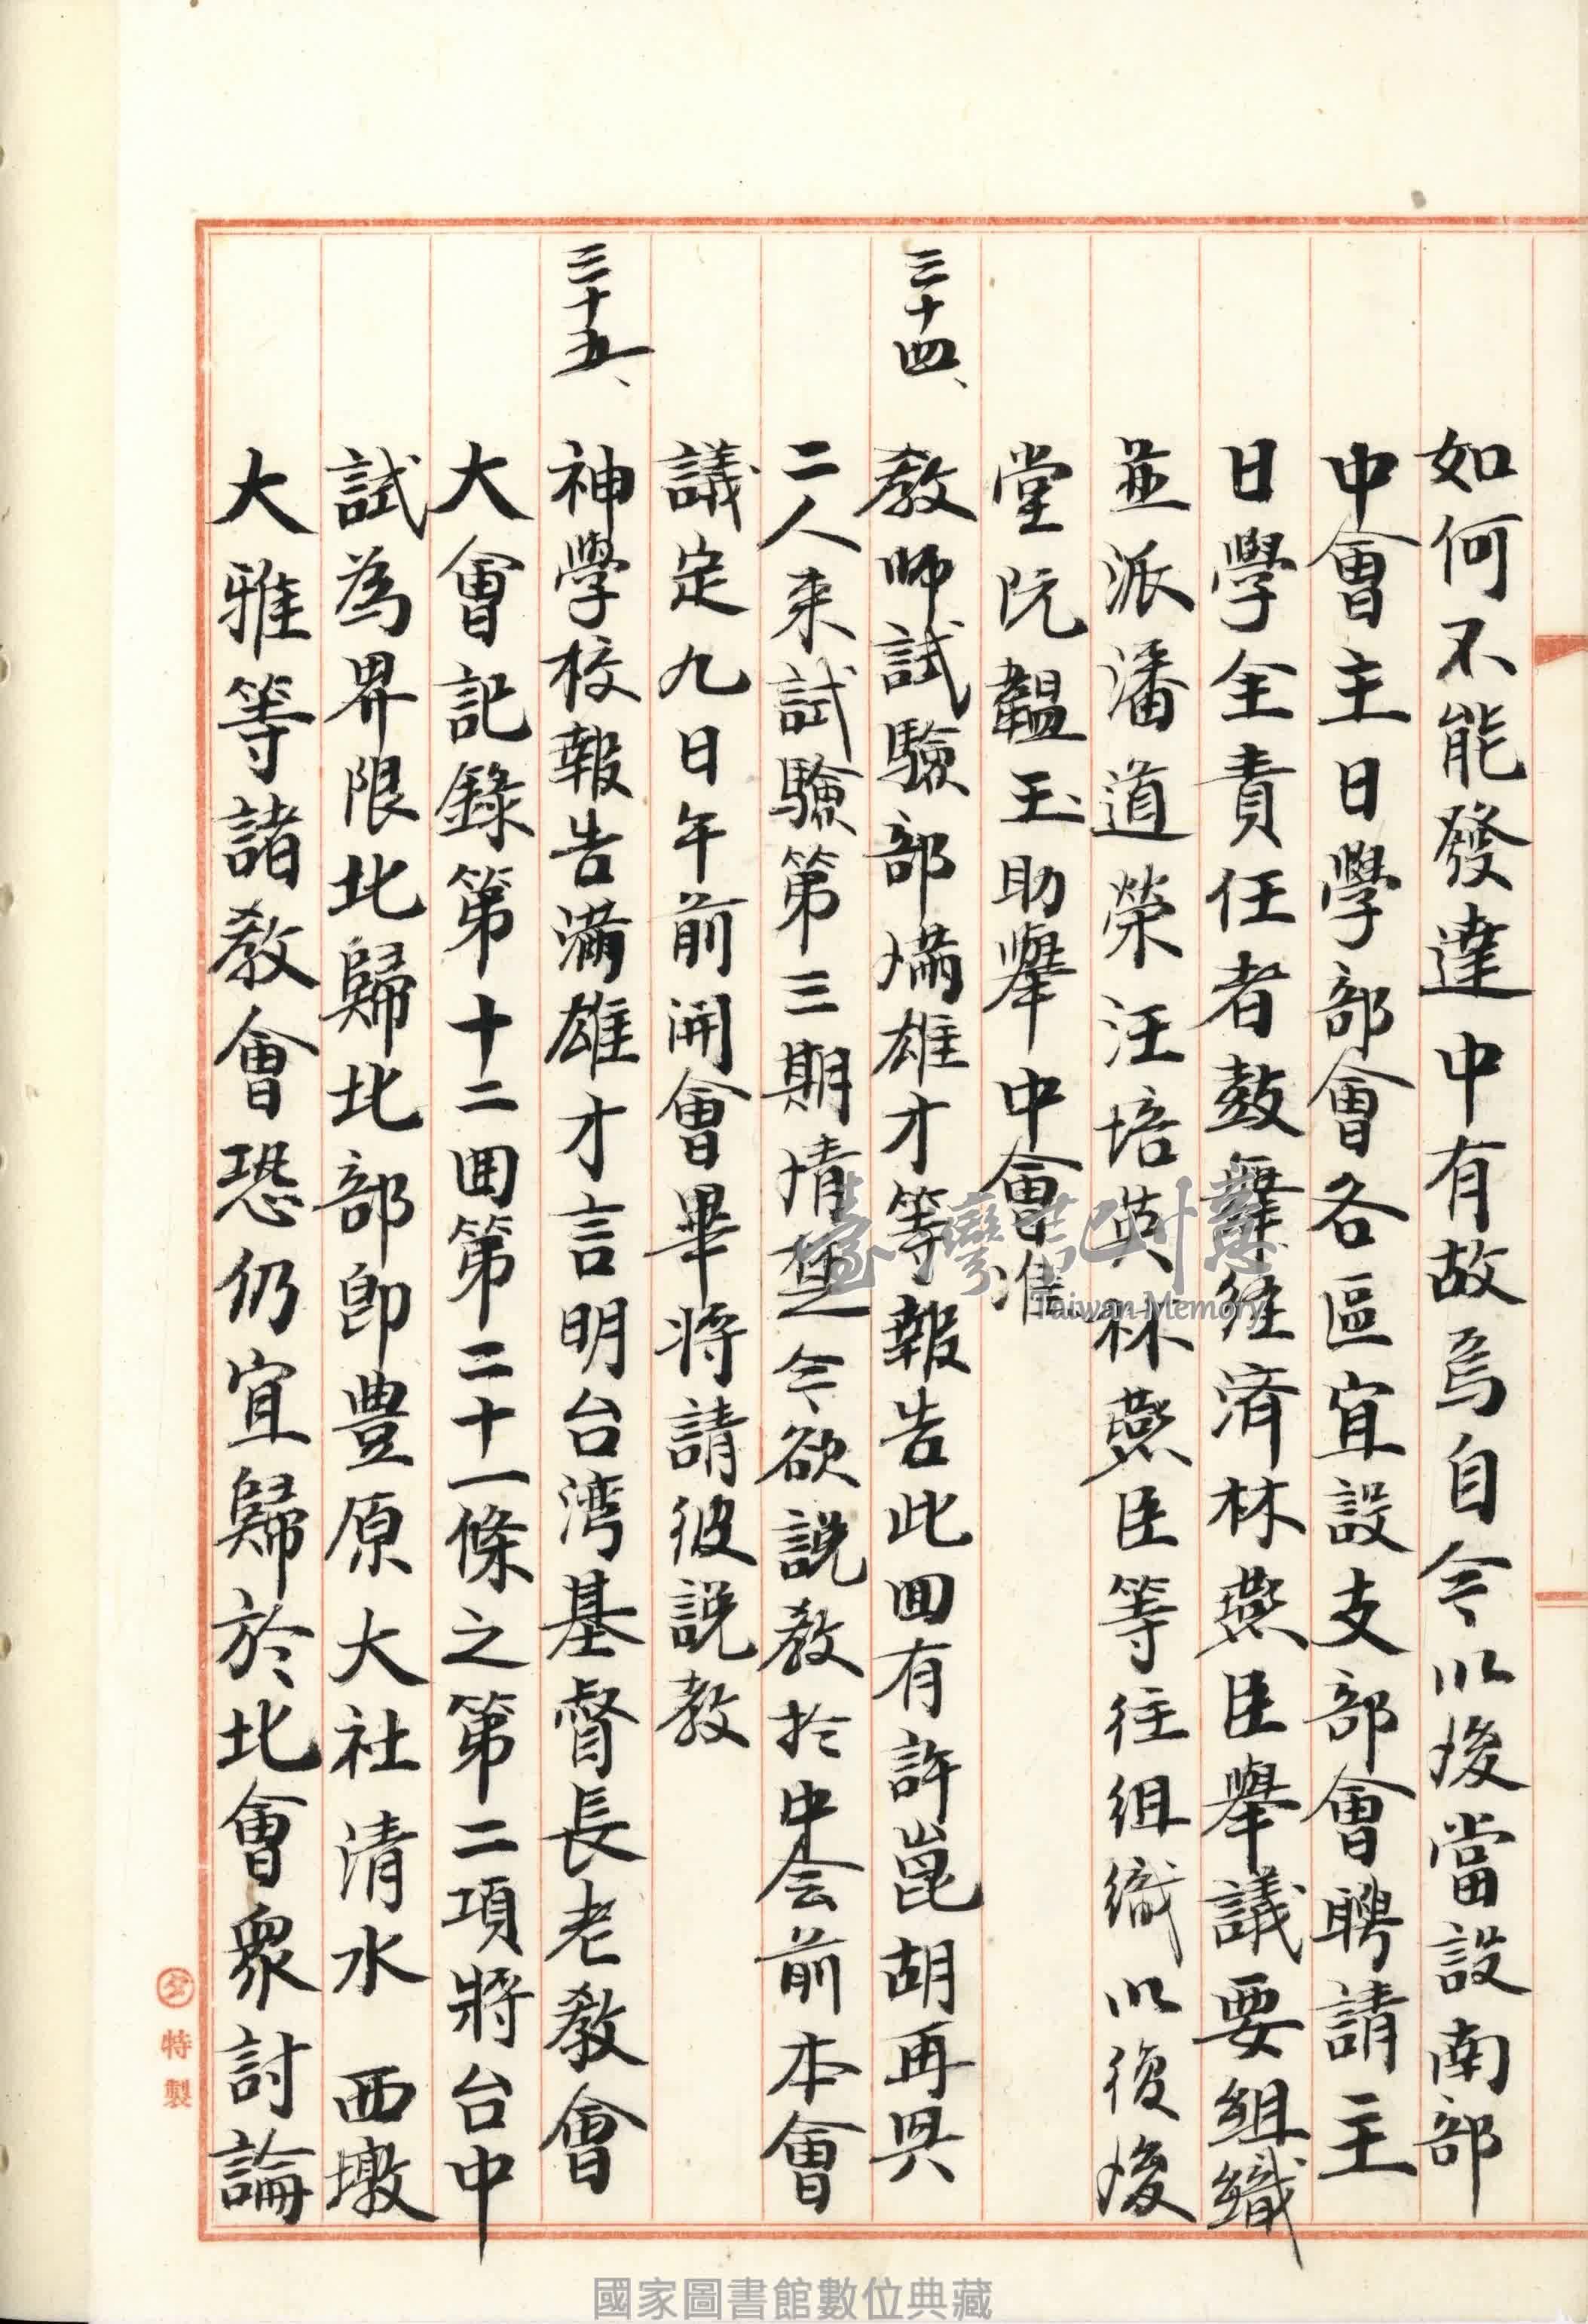 如何不能發達中有故焉自今以後當設南部
中會主日學部會各區宜設支部會聘請主
日學全責任者鼓舞經濟林燕臣舉議要組織
並派潘道榮汪培英林燕臣等往組織以後後
堂阮韞玉助舉中會准
三十四、教師試驗部滿雄才等報告此囬有許崑胡再興
二人来試驗第三期清楚今欲説教於中会前本會
議定九日午前開會畢將請彼説教
三十五、神學校報告滿雄才言明台湾基督長老教會
大會記錄第十二囬第二十一條之第二項將台中
試為界限北歸北部即豊原大社清水西墩
大雅等諸教會恐仍宜歸於北會眾討論
特製
臺灣記憶
Taiwan Memory
國家圖書館數位典藏